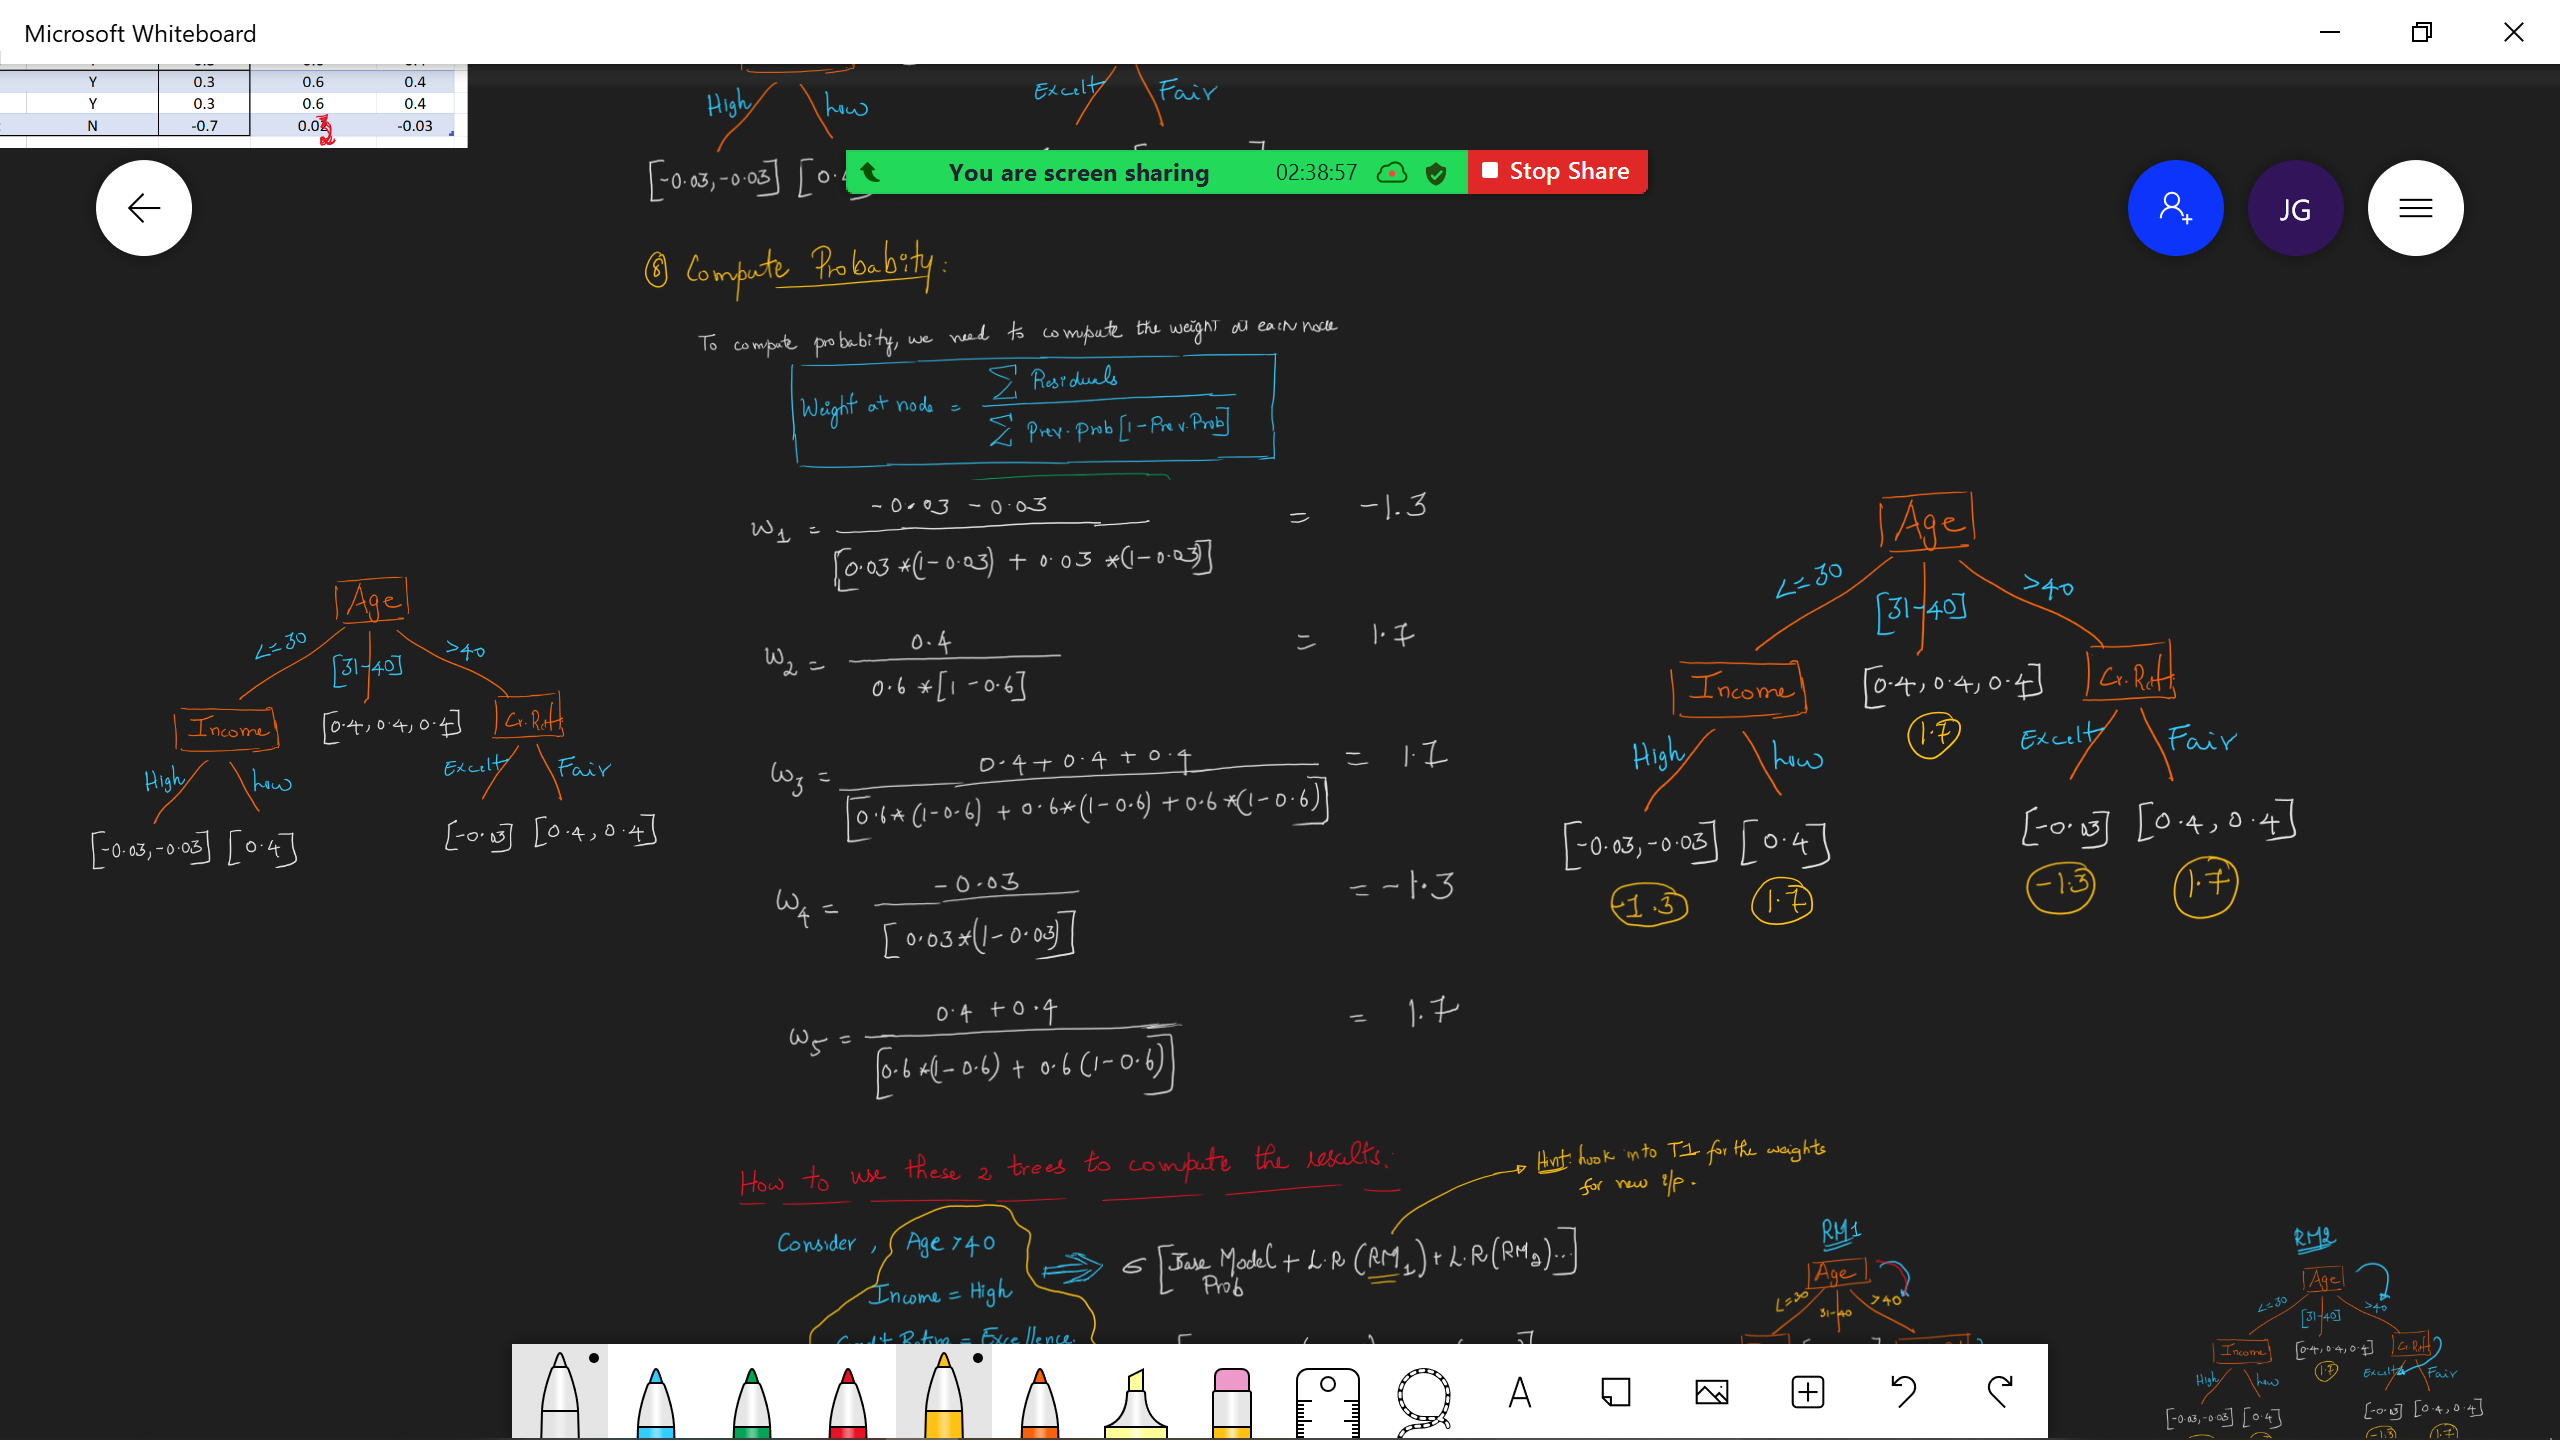 Microsoft Whiteboard
Y 0.3 0.6 0.4
Y 0.3 0.6 0.4
N -0.7 0.02 3 -0.03
High Low
Excelt Fair
[-0.03, -0.03] [0.4
You are screen sharing 02:38:57 Stop Share
JG
⑧ Compute Probabity:
To compute probabity, we need to compute the weight at each node
Weight at node = Σ Residuals
Σ Prev. Prob [1 - Prev. Prob]
w1 = -0.03 - 0.03 = -1.3
[0.03 *(1-0.03) + 0.03 *(1-0.03)]
w2 = 0.4 = 1.7
0.6 *[1 - 0.6]
w3 = 0.4 + 0.4 + 0.4 = 1.7
[0.6*(1-0.6) + 0.6*(1-0.6) + 0.6*(1-0.6)]
w4 = -0.03 = -1.3
[0.03*(1-0.03)]
w5 = 0.4 + 0.4 = 1.7
[0.6*(1-0.6) + 0.6 (1-0.6)]
Age
<=30 [31-40] >40
Income [0.4, 0.4, 0.4] Cr.Rat
High Low Excelt Fair
[-0.03, -0.03] [0.4] [-0.03] [0.4, 0.4]
Age
<=30 [31-40] >40
Income [0.4, 0.4, 0.4] Cr.Rat
1.7
High Low Excelt Fair
[-0.03, -0.03] [0.4] [-0.03] [0.4, 0.4]
-1.3 1.7 -1.3 1.7
How to use these 2 trees to compute the results:
Hint: Look into T1 for the weights
for new i/p.
Consider, Age >40
Income = High
Credit Rating = Excellence
σ [Base Model + L.R (RM1) + L.R (RM2)...]
Prob
RM1
Age
<=30 31-40 >40
RM2
Age
<=30 [31-40] >40
Income [0.4, 0.4, 0.4] Cr.Rat
1.7
High Low Excelt Fair
[-0.03, -0.03] [0.4] [-0.03] [0.4, 0.4]
-1.3 1.7
A